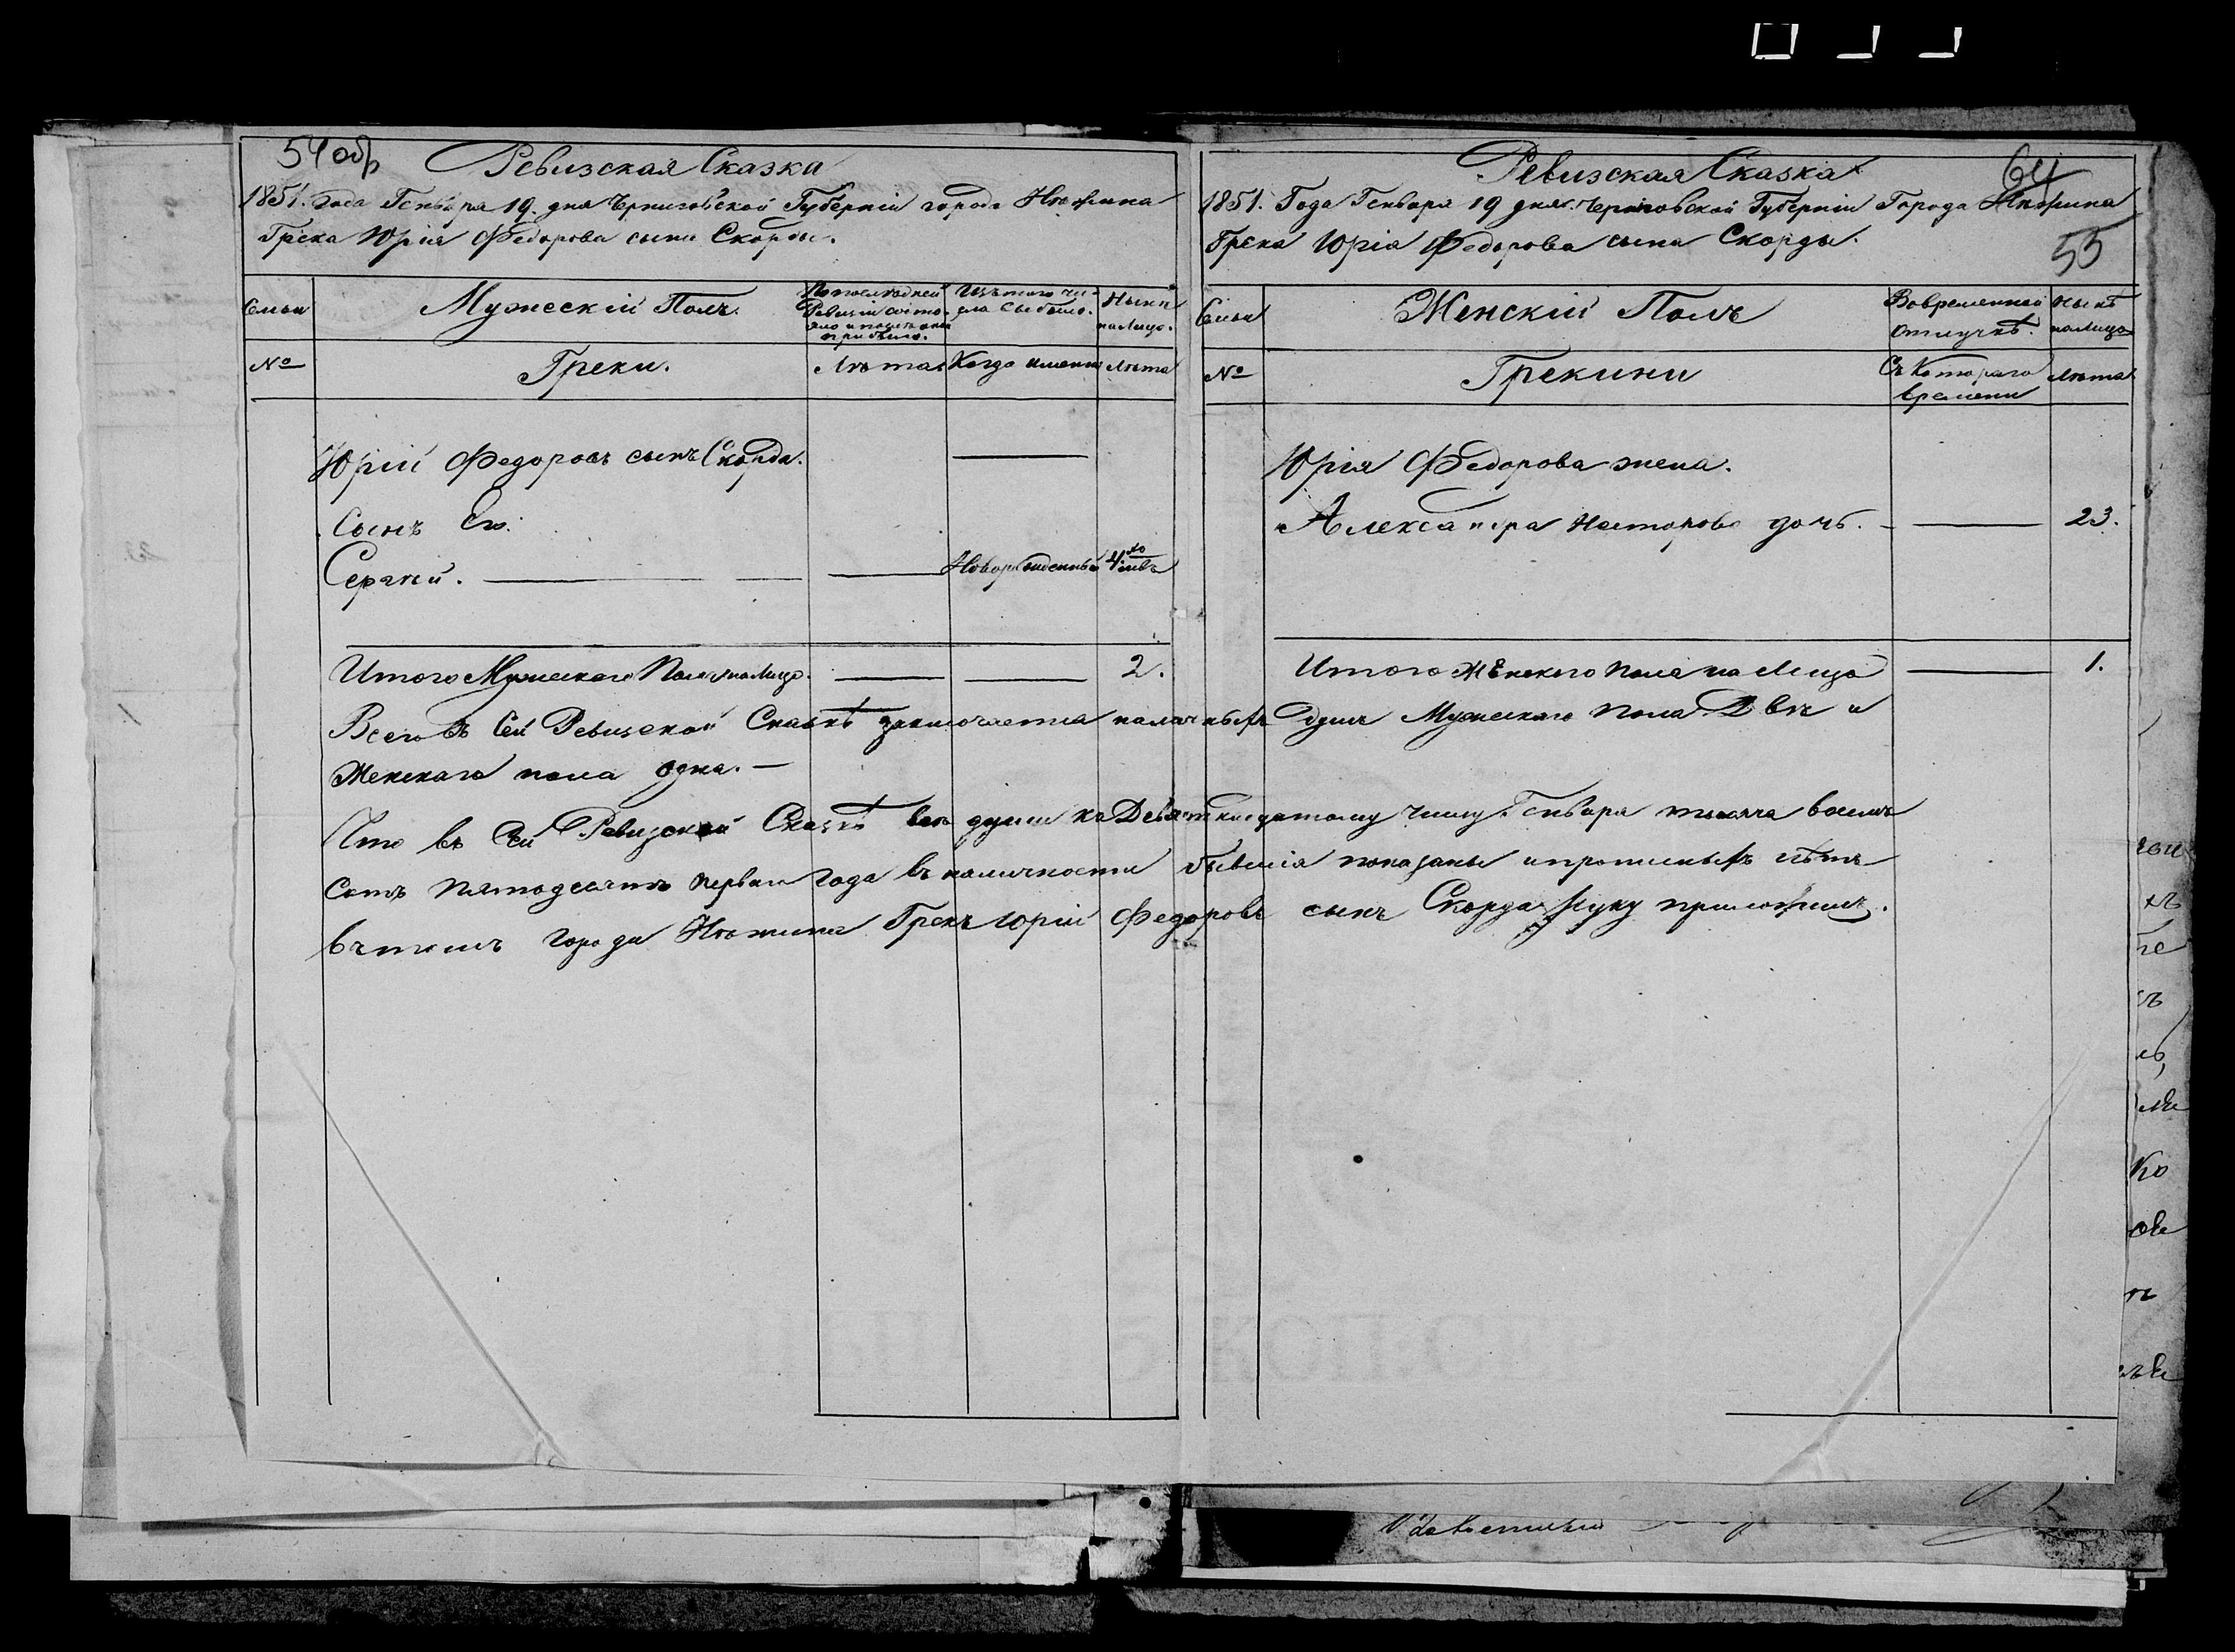 54 обр
Ревизская Сказка
1851. года Генваря 19. дня Черниговской Губерніи города Нѣжина
Грека Юрія Федорова сына Скорды.
Семьи
Мужескій Полъ.
По последней Ревизіи состояло и после оной прибыло.
Изъ того числа выбыло.
Нынѣ на лицо.
№
Греки.
Лѣта
Когда именно
Лѣта
Юрій Федоровъ сынъ Скорда.
Сынъ Его:
Сергѣй.
Новорожденный
4 мѣ
Итого Мужескаго Пола на лицо.
2.
Ревизская Сказка
64
1851. Года Генваря 19 дня. Черниговской Губерніи Города Нѣжина
Грека Юрія Федорова сына Скорды.
55
Семьи
Женскій Полъ
Вовременной отлучкѣ.
Нынѣ на лицо
№
Грекини
Съ Котораго времени
Лѣта
Юрія Федорова жена.
Александра Несторова дочь.
23.
Итого Женского пола на Лицо
1.
Всего въ Сей Ревизской Сказкѣ заключается наличныхъ душъ Мужескаго пола Двѣ и
Женскаго пола одна.
Что въ Сей Ревизской Сказкѣ все души къ Девятнадцатому числу Генваря тысяча восемь
сотъ пятдесятъ перваго года въ наличности бывшія показаны и прописныхъ нѣтъ
въ томъ города Нѣжина Грекъ Юрій Федоровъ сынъ Скорда Руку приложилъ.